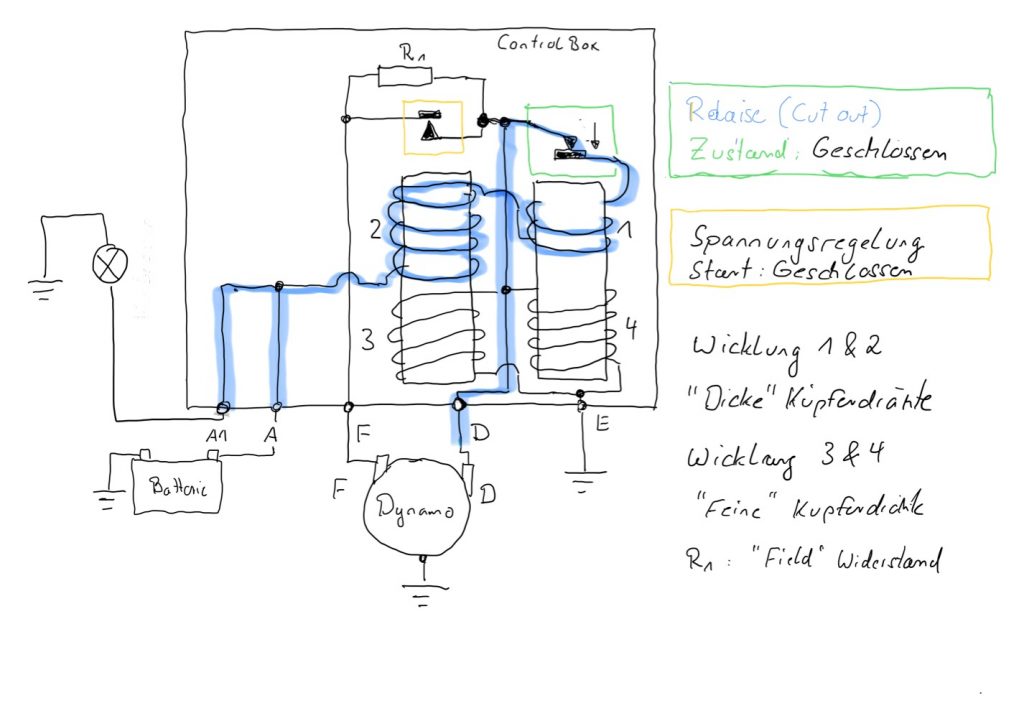 Control Box
R1
Relaise (Cut out)
Zustand: Geschlossen
2
1
Spannungsregelung
Start: Geschlossen
3
4
Wicklung 1 & 2
"Dicke" Kupferdrähte
A1
A
F
D
E
Wicklung 3 & 4
Batterie
F
D
"Feine" Kupferdrähte
Dynamo
R1: "Field" Widerstand